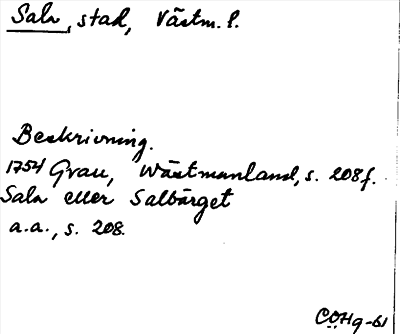 Sala, stad, Västm. l.
Beskrivning.
1754 Grau, Wästmanland, s. 208f.
Sala eller Salbärget
a.a., s. 208.
COHg-61